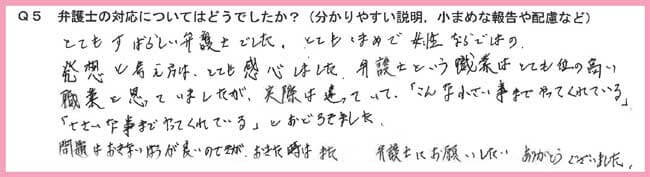 Q5　弁護士の対応についてはどうでしたか？（分かりやすい説明，小まめな報告や配慮など）
とてもすばらしい弁護士でした。とてもまめで女性ならではの
発想と考え方は、とても感心しました。弁護士という職業はとても位の高い
職業と思っていましたが、実際は違っていて、「こんな小さい事までやってくれている」
「ささいな事までやってくれている」とおどろきました。
問題はおきないほうが良いのですが、おきた時はまた　弁護士にお願いしたい　ありがとうございました。